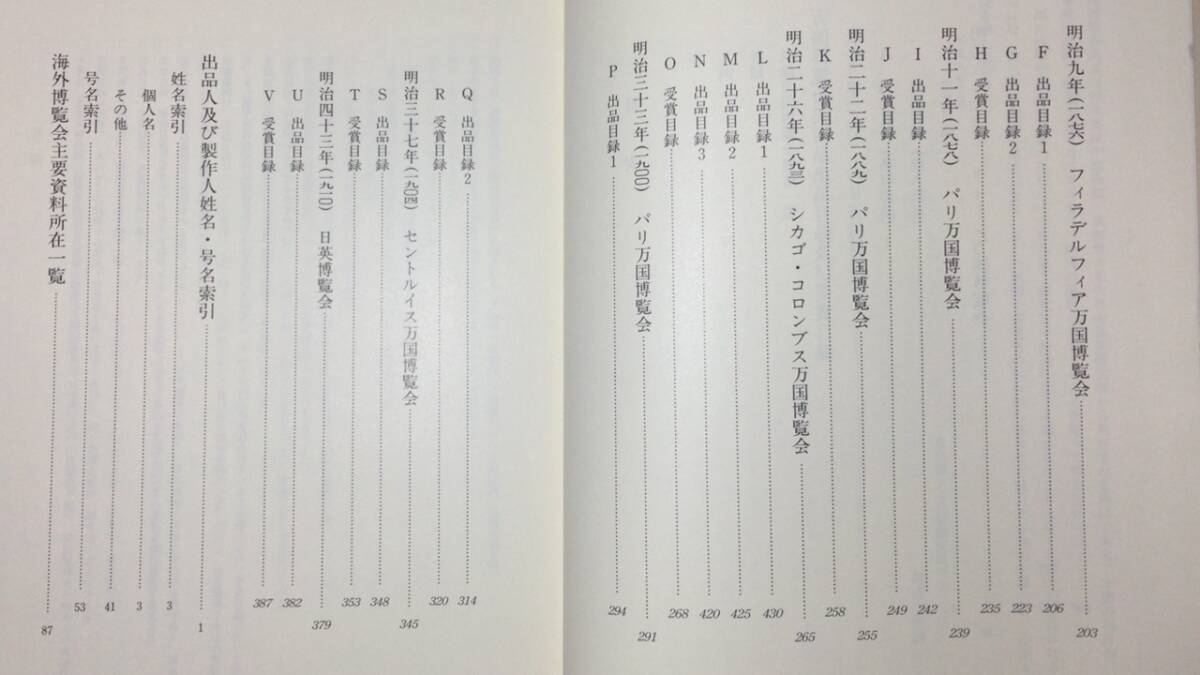 明治九年(一八七六) フィラデルフィア万国博覧会 203
F 出品目録1 206
G 出品目録2 223
H 受賞目録 235
明治十一年(一八七八) パリ万国博覧会 239
I 出品目録 242
J 受賞目録 249
明治二十二年(一八八九) パリ万国博覧会 255
K 受賞目録 258
明治二十六年(一八九三) シカゴ・コロンブス万国博覧会 265
L 出品目録1 430
M 出品目録2 425
N 出品目録3 420
O 受賞目録 268
明治三十三年(一九〇〇) パリ万国博覧会 291
P 出品目録1 294
Q 出品目録2 314
R 受賞目録 320
明治三十七年(一九〇四) セントルイス万国博覧会 345
S 出品目録 348
T 受賞目録 353
明治四十三年(一九一〇) 日英博覧会 379
U 出品目録 382
V 受賞目録 387
出品人及び製作人姓名・号名索引 1
姓名索引 3
個人名 3
その他 41
号名索引 53
海外博覧会主要資料所在一覧 87